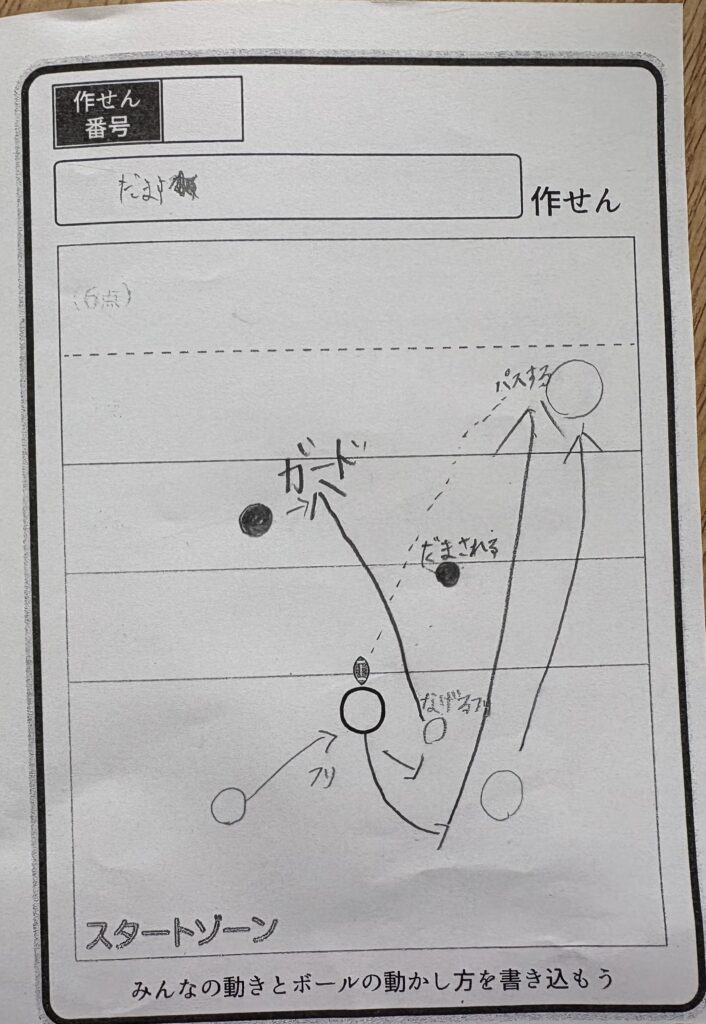 作せん
番号
だます
作せん
(6点)
パスする
ガード
だまされる
なげるフリ
フリ
スタートゾーン
みんなの動きとボールの動かし方を書き込もう